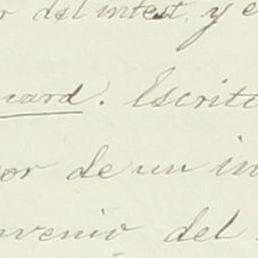 del intest. y
nard. Escrito
or de un in
nvenio del